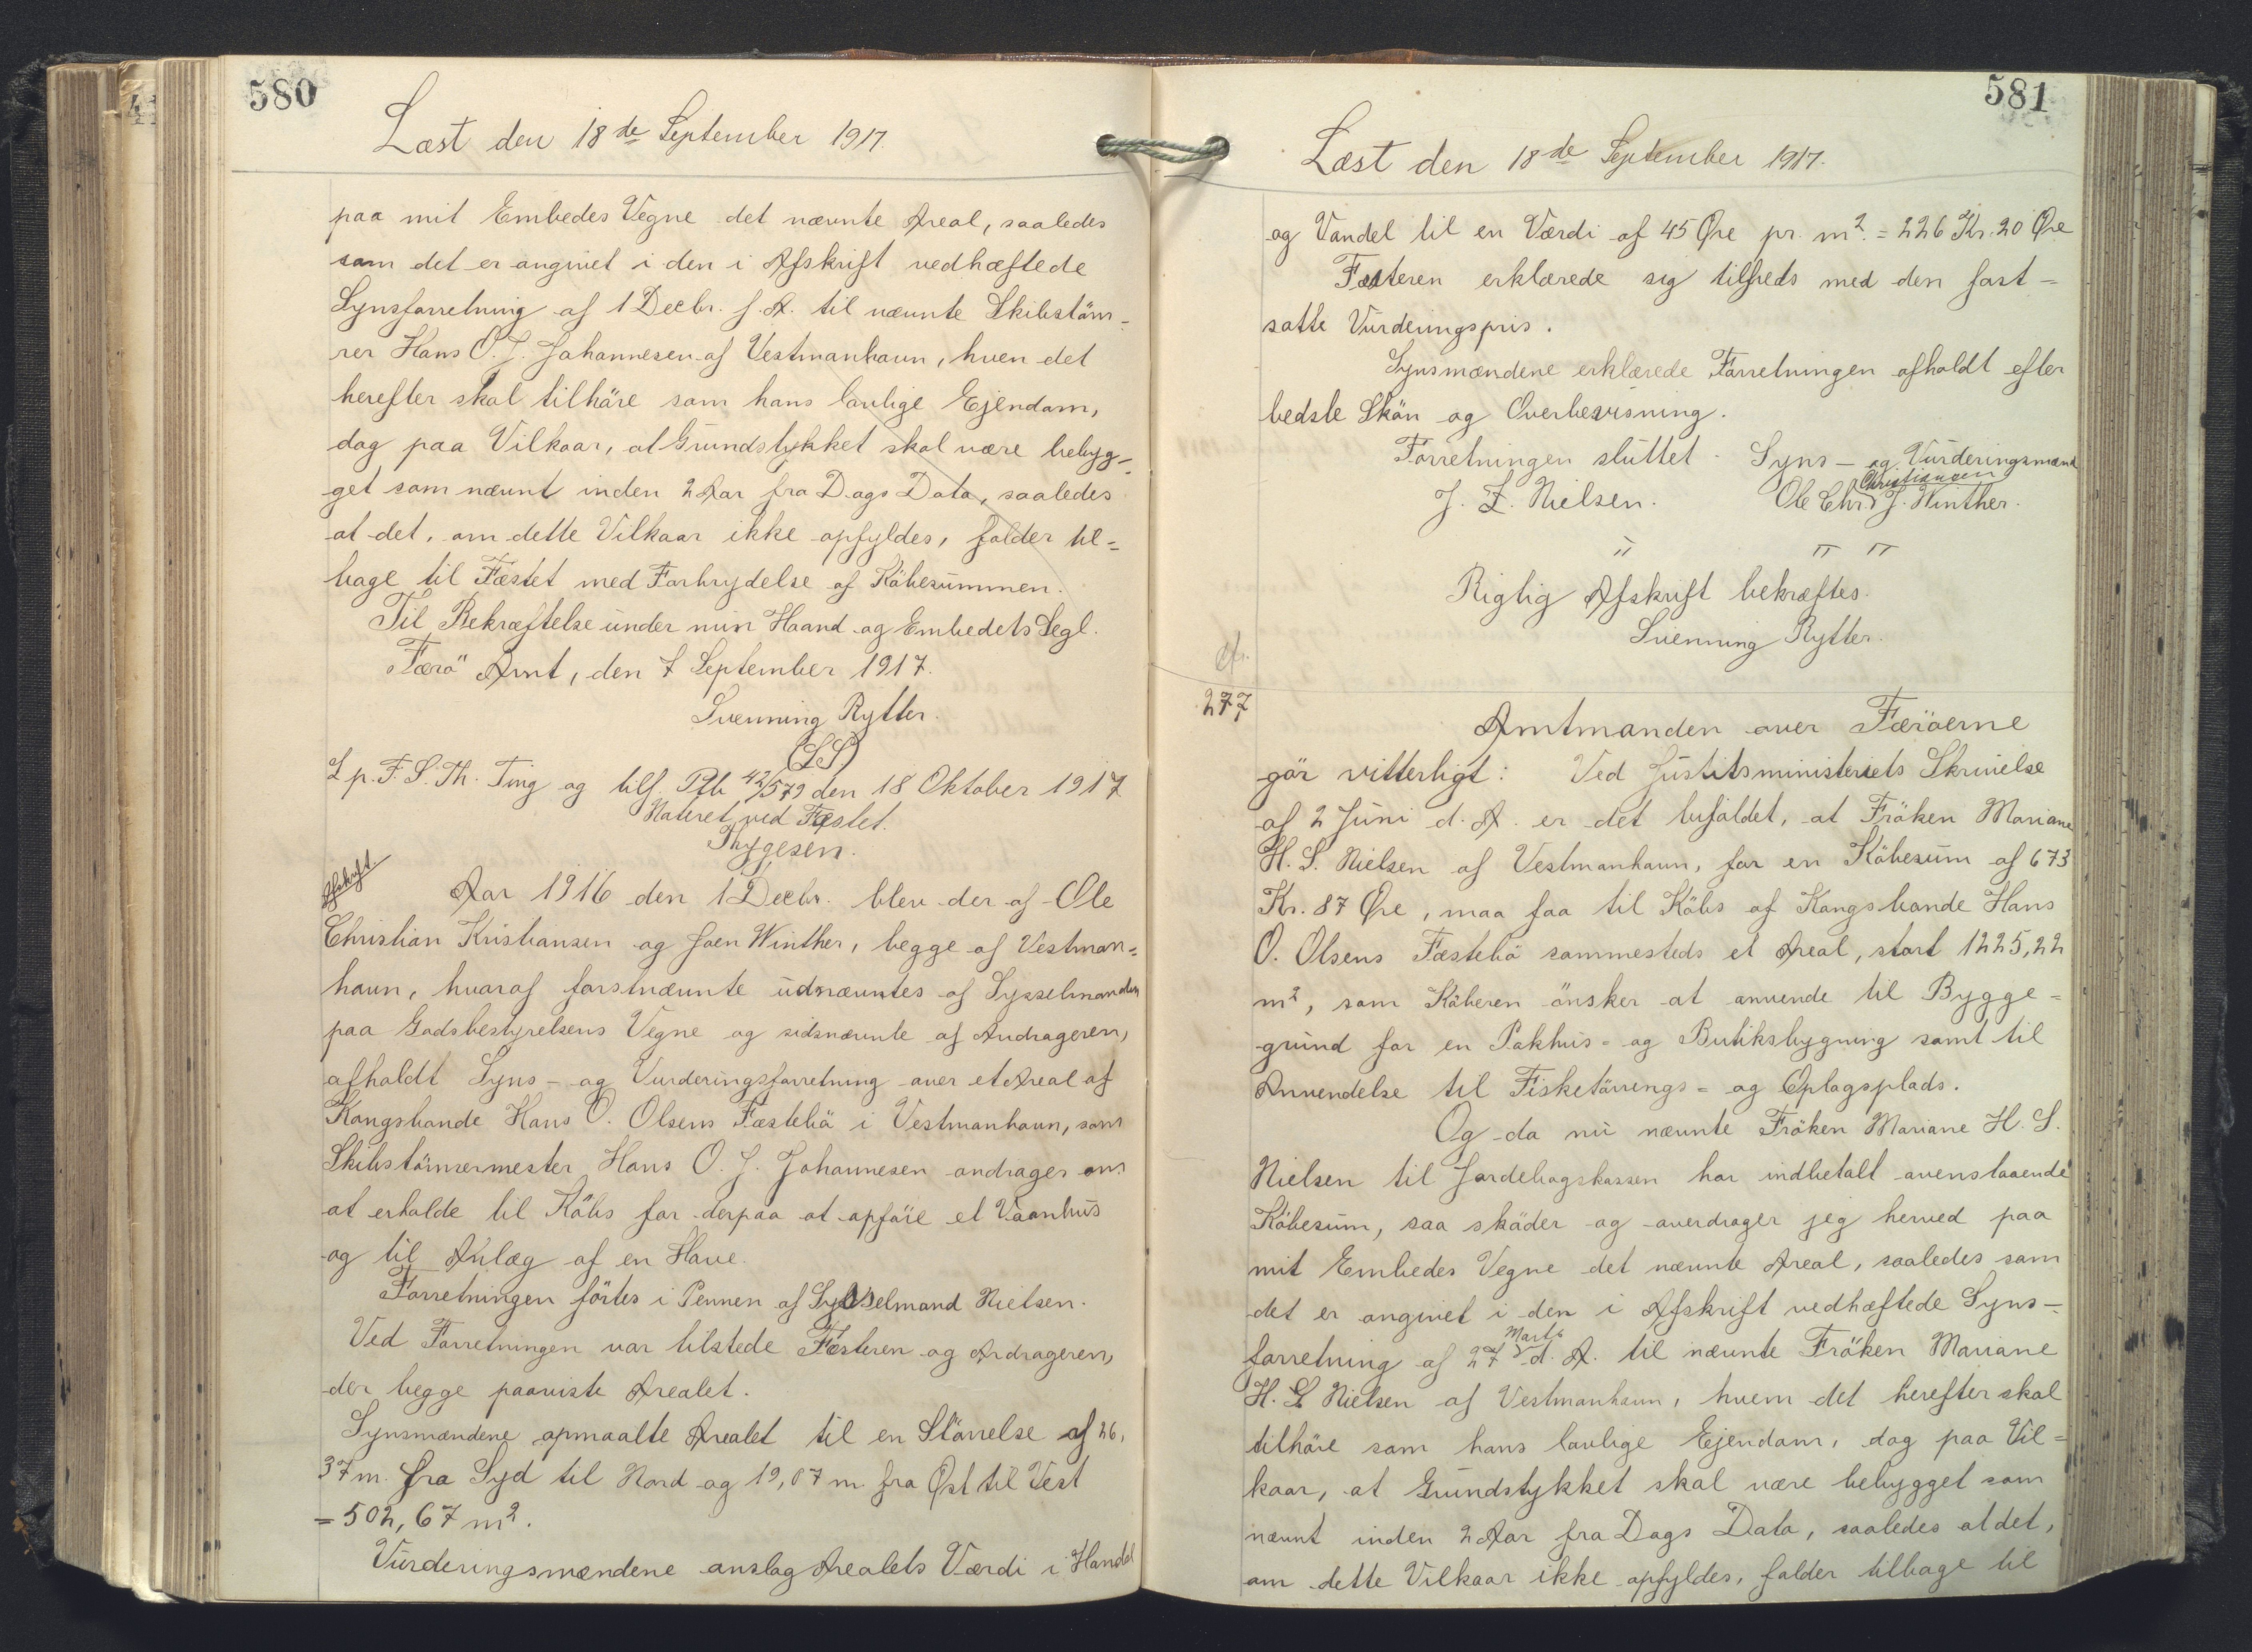 580
Læst den 18de September 1917.
paa mit Embedes Vegne det nævnte Areal, saaledes
som det er angivet i den i Afskrift vedhæftede
Synsforretning af 1 Decbr. f. A. til nævnte Skibstöm-
rer Hans O. J. Johannesen af Vestmanhavn, hven det
herefter skal tilhöre som hans lovlige Ejendom,
dog paa Vilkaar, at Grundstykket skal være bebyg-
get som nævnt inden 2 Aar fra Dags Dato, saaledes
at det, om dette Vilkaar ikke opfyldes, falder til-
bage til Fæstet med Forbrydelse af Köbesummen.
Til Bekræftelse under min Haand og Embedets Segl.
Færö Amt, den 7 September 1917.
Svenning Rytter.
(LS)
L p. F. S. Th. Ting og tilf. Ptb 42/579 den 18 Oktober 1917
Noteret ved Fæstet.
Thygesen.
Afskrift.
Aar 1916 den 1 Decbr. blev der af Ole
Christian Kristiansen og Joen Winther, begge af Vestman-
havn, hvoraf førstnævnte udnævntes af Sysselmanden
paa Godsbestyrelsens Vegne og sidsnævnte af Andrageren,
afholdt Syns- og Vurderingsforretning over et Areal af
Kongsbonde Hans O. Olsens Fæstebö i Vestmanhavn, som
Skibstömrermester Hans O. J. Johannesen andrager om
at erholde til Köbs for derpaa at opföre et Vaanhus
og til Anlæg af en Have.
Forretningen förtes i Pennen af Sysselmand Nielsen.
Ved Forretningen var tilstede Fæsteren og Andrageren,
der begge paaviste Arealet.
Synsmændene opmaalte Arealet til en Störrelse af 26,
37 m. fra Syd til Nord og 19,07 m. fra Øst til Vest
= 502,67 m2.
Vurderingsmændene anslog Arealets Værdi i Handel
581
Læst den 18de September 1917.
og Vandel til en Værdi af 45 Øre pr. m2. = 226 Kr. 20 Øre
Fæsteren erklærede sig tilfreds med den fast-
satte Vurderingspris.
Synsmændene erklærede Forretningen afholdt efter
bedste Skön og Overbevisning.
Forretningen sluttet. Syns- og Vurderingsmænd
Christiansen
J. L. Nielsen. Ole Chr. J. Winther.
Rigtig Afskrift bekræftes.
Svenning Rytter.
277
Amtmanden over Færöerne
gör vitterligt: Ved Justitsministeriets Skrivelse
af 2 Juni d. A. er det bifaldet, at Fröken Mariane
H. S. Nielsen af Vestmanhavn, for en Köbesum af 673
Kr. 87 Øre, maa faa til Köbs af Kongsbonde Hans
O. Olsens Fæstebö sammesteds et Areal, stort 1225,22
m2, som Köberen önsker at anvende til Bygge-
grund for en Pakhus- og Butiksbygning samt til
Anvendelse til Fisketörrings- og Oplagsplads.
Og da nu nævnte Fröken Mariane H. S.
Nielsen til Jordebogskassen har indbetalt ovenstaaende
Köbesum, saa sköder og overdrager jeg herved paa
mit Embedes Vegne det nævnte Areal, saaledes som
det er angivet i den i Afskrift vedhæftede Syns-
Marts
forretning af 27 d. A. til nævnte Fröken Mariane
H. S. Nielsen af Vestmanhavn, hvem det herefter skal
tilhöre som hans lovlige Ejendom, dog paa Vil-
kaar, at Grundstykket skal være bebygget som
nævnt inden 2 Aar fra Dags Dato, saaledes at det,
om dette Vilkaar ikke opfyldes, falder tilbage til